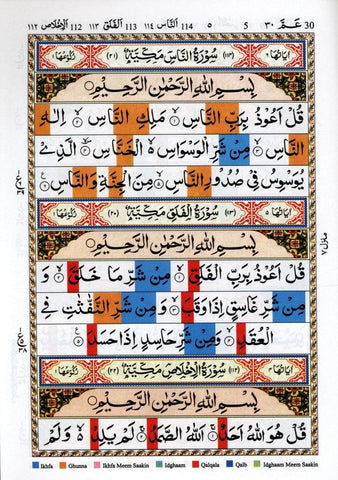 30 عـمّ ٣٠ 5 ٥ 114 النّاس ١١٤ 113 الفلق ١١٣ 112 الإخلاص ١١٢
سُورَةُ النَّاسِ مَكِّيَّةٌ
بِسْمِ اللّٰهِ الرَّحْمٰنِ الرَّحِيْمِ
قُلْ اَعُوْذُ بِرَبِّ النَّاسِ ۙ مَلِكِ النَّاسِ ۙ اِلٰهِ
النَّاسِ ۙ مِنْ شَرِّ الْوَسْوَاسِ ۙ الْخَنَّاسِ ۙ الَّذِيْ
يُوَسْوِسُ فِيْ صُدُوْرِ النَّاسِ ۙ مِنَ الْجِنَّةِ وَالنَّاسِ
سُورَةُ الْفَلَقِ مَكِّيَّةٌ
بِسْمِ اللّٰهِ الرَّحْمٰنِ الرَّحِيْمِ
قُلْ اَعُوْذُ بِرَبِّ الْفَلَقِ ۙ مِنْ شَرِّ مَا خَلَقَ ۙ وَ
مِنْ شَرِّ غَاسِقٍ اِذَا وَقَبَ ۙ وَ مِنْ شَرِّ النَّفّٰثٰتِ فِي
الْعُقَدِ ۙ وَمِنْ شَرِّ حَاسِدٍ اِذَا حَسَدَ
سُورَةُ الْاِخْلَاصِ مَكِّيَّةٌ
بِسْمِ اللّٰهِ الرَّحْمٰنِ الرَّحِيْمِ
قُلْ هُوَ اللّٰهُ اَحَدٌ ۚ اَللّٰهُ الصَّمَدُ ۚ لَمْ يَلِدْ ۙ وَلَمْ
Ikhfa Ghunna Ikhfa Meem Saakin Idghaam Qalqala Qalb Idghaam Meem Saakin